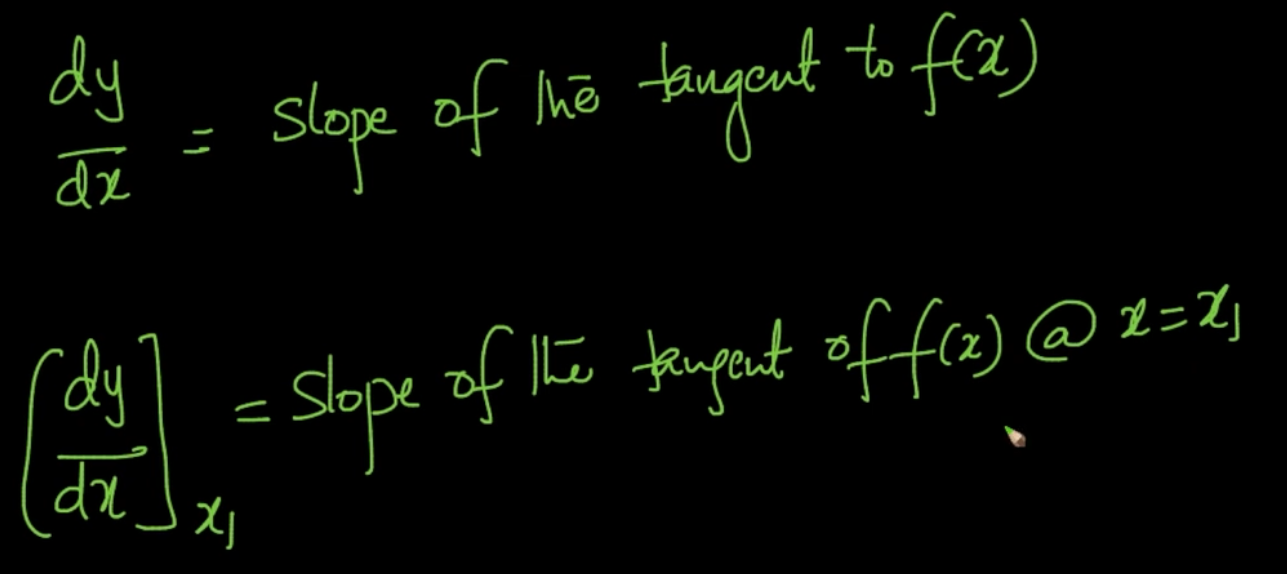 dy/dx = slope of the tangent to f(x)
[dy/dx]x₁ = slope of the tangent of f(x) @ x=x₁